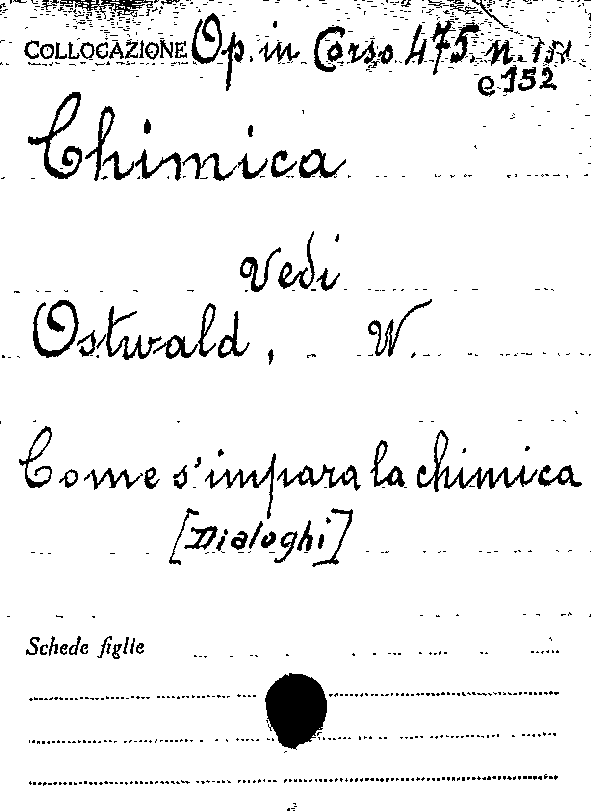 COLLOCAZIONE Op. in Corso 475. n. 151
e 152
Chimica
Vedi
Ostwald, W.
Come s'impara la chimica
[Dialoghi]
Schede figlie